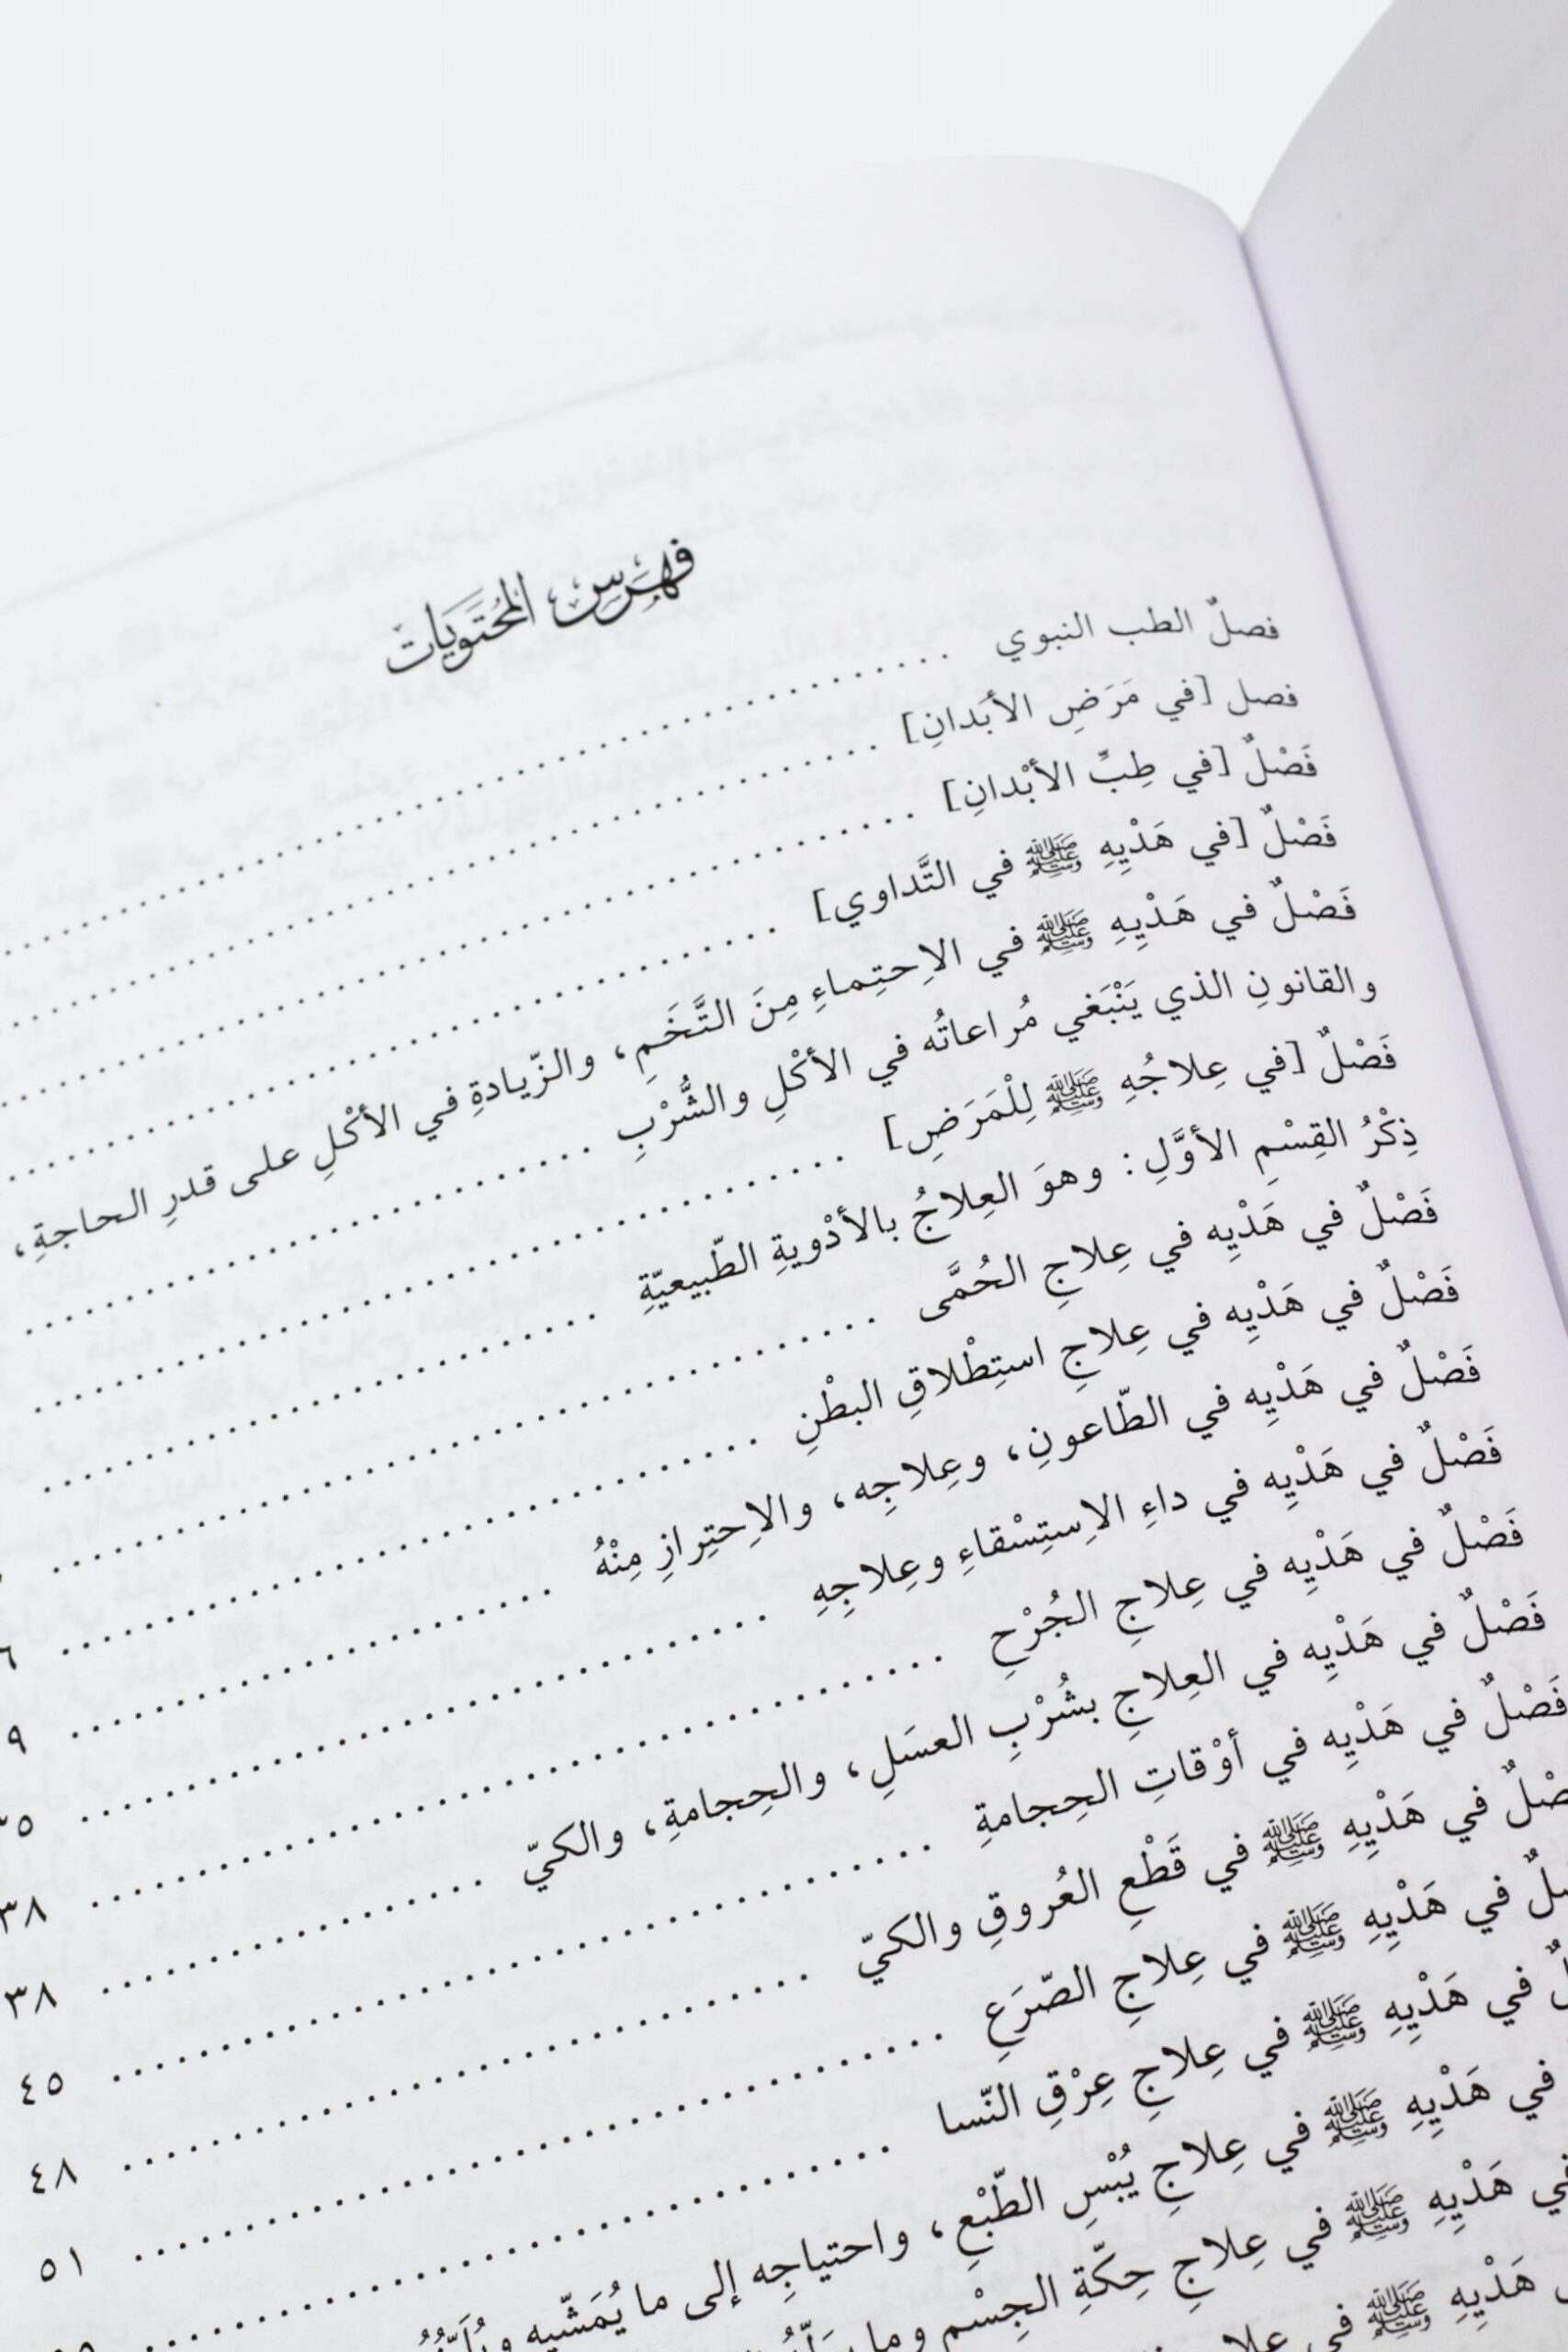 فهرس المحتويات
فصلٌ الطب النبوي
فصل [في مَرَضِ الأبدانِ]
فَصْلٌ [في طِبِّ الأبْدانِ]
فَصْلٌ [في هَدْيِهِ ﷺ في التَّداوي]
فَصْلٌ في هَدْيِهِ ﷺ في الاِحتِماءِ مِنَ التَّخَمِ، والزّيادةِ في الأكْلِ على قدرِ الحاجةِ،
والقانونِ الذي يَنْبَغي مُراعاتُه في الأكْلِ والشُّرْبِ
فَصْلٌ [في عِلاجُهِ ﷺ لِلْمَرَضِ]
ذِكْرُ القِسْمِ الأوَّلِ: وهوَ العِلاجُ بالأدْويةِ الطّبيعيّةِ
فَصْلٌ في هَدْيِه في عِلاجِ الحُمَّى
فَصْلٌ في هَدْيِه في عِلاجِ استِطْلاقِ البطْنِ ٦
فَصْلٌ في هَدْيِه في الطّاعونِ، وعِلاجِه، والاِحتِرازِ مِنْهُ ٩
فَصْلٌ في هَدْيِه في داءِ الاِستِسْقاءِ وعِلاجِهِ ٣٥
فَصْلٌ في هَدْيِه في عِلاجِ الجُرْحِ ٣٨
فَصْلٌ في هَدْيِه في العِلاجِ بشُرْبِ العسَلِ، والحِجامةِ، والكيّ ٣٨
فَصْلٌ في هَدْيِه في أوْقاتِ الحِجامةِ ٤٥
فصْلٌ في هَدْيِهِ ﷺ في قَطْعِ العُروقِ والكيّ ٤٨
صلٌ في هَدْيِهِ ﷺ في عِلاجِ الصّرَعِ ٥١
لٌ في هَدْيِهِ ﷺ في عِلاجِ عِرْقِ النّسا
في هَدْيِهِ ﷺ في عِلاجِ يُبْسِ الطّبْعِ، واحتياجِه إلى ما يُمَشّيه
في هَدْيِهِ ﷺ في عِلاجِ حِكّةِ الجِسْمِ وما
هَدْيِهِ ﷺ في